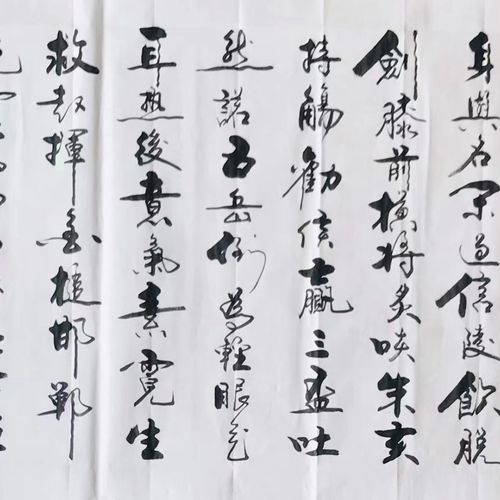 身與名閑過信陵飲脫
劍膝前橫將炙啖朱亥
持觴勸侯嬴三盃吐
然諾五岳倒為輕眼花
耳熱後意氣素霓生
救趙揮金槌邯鄲